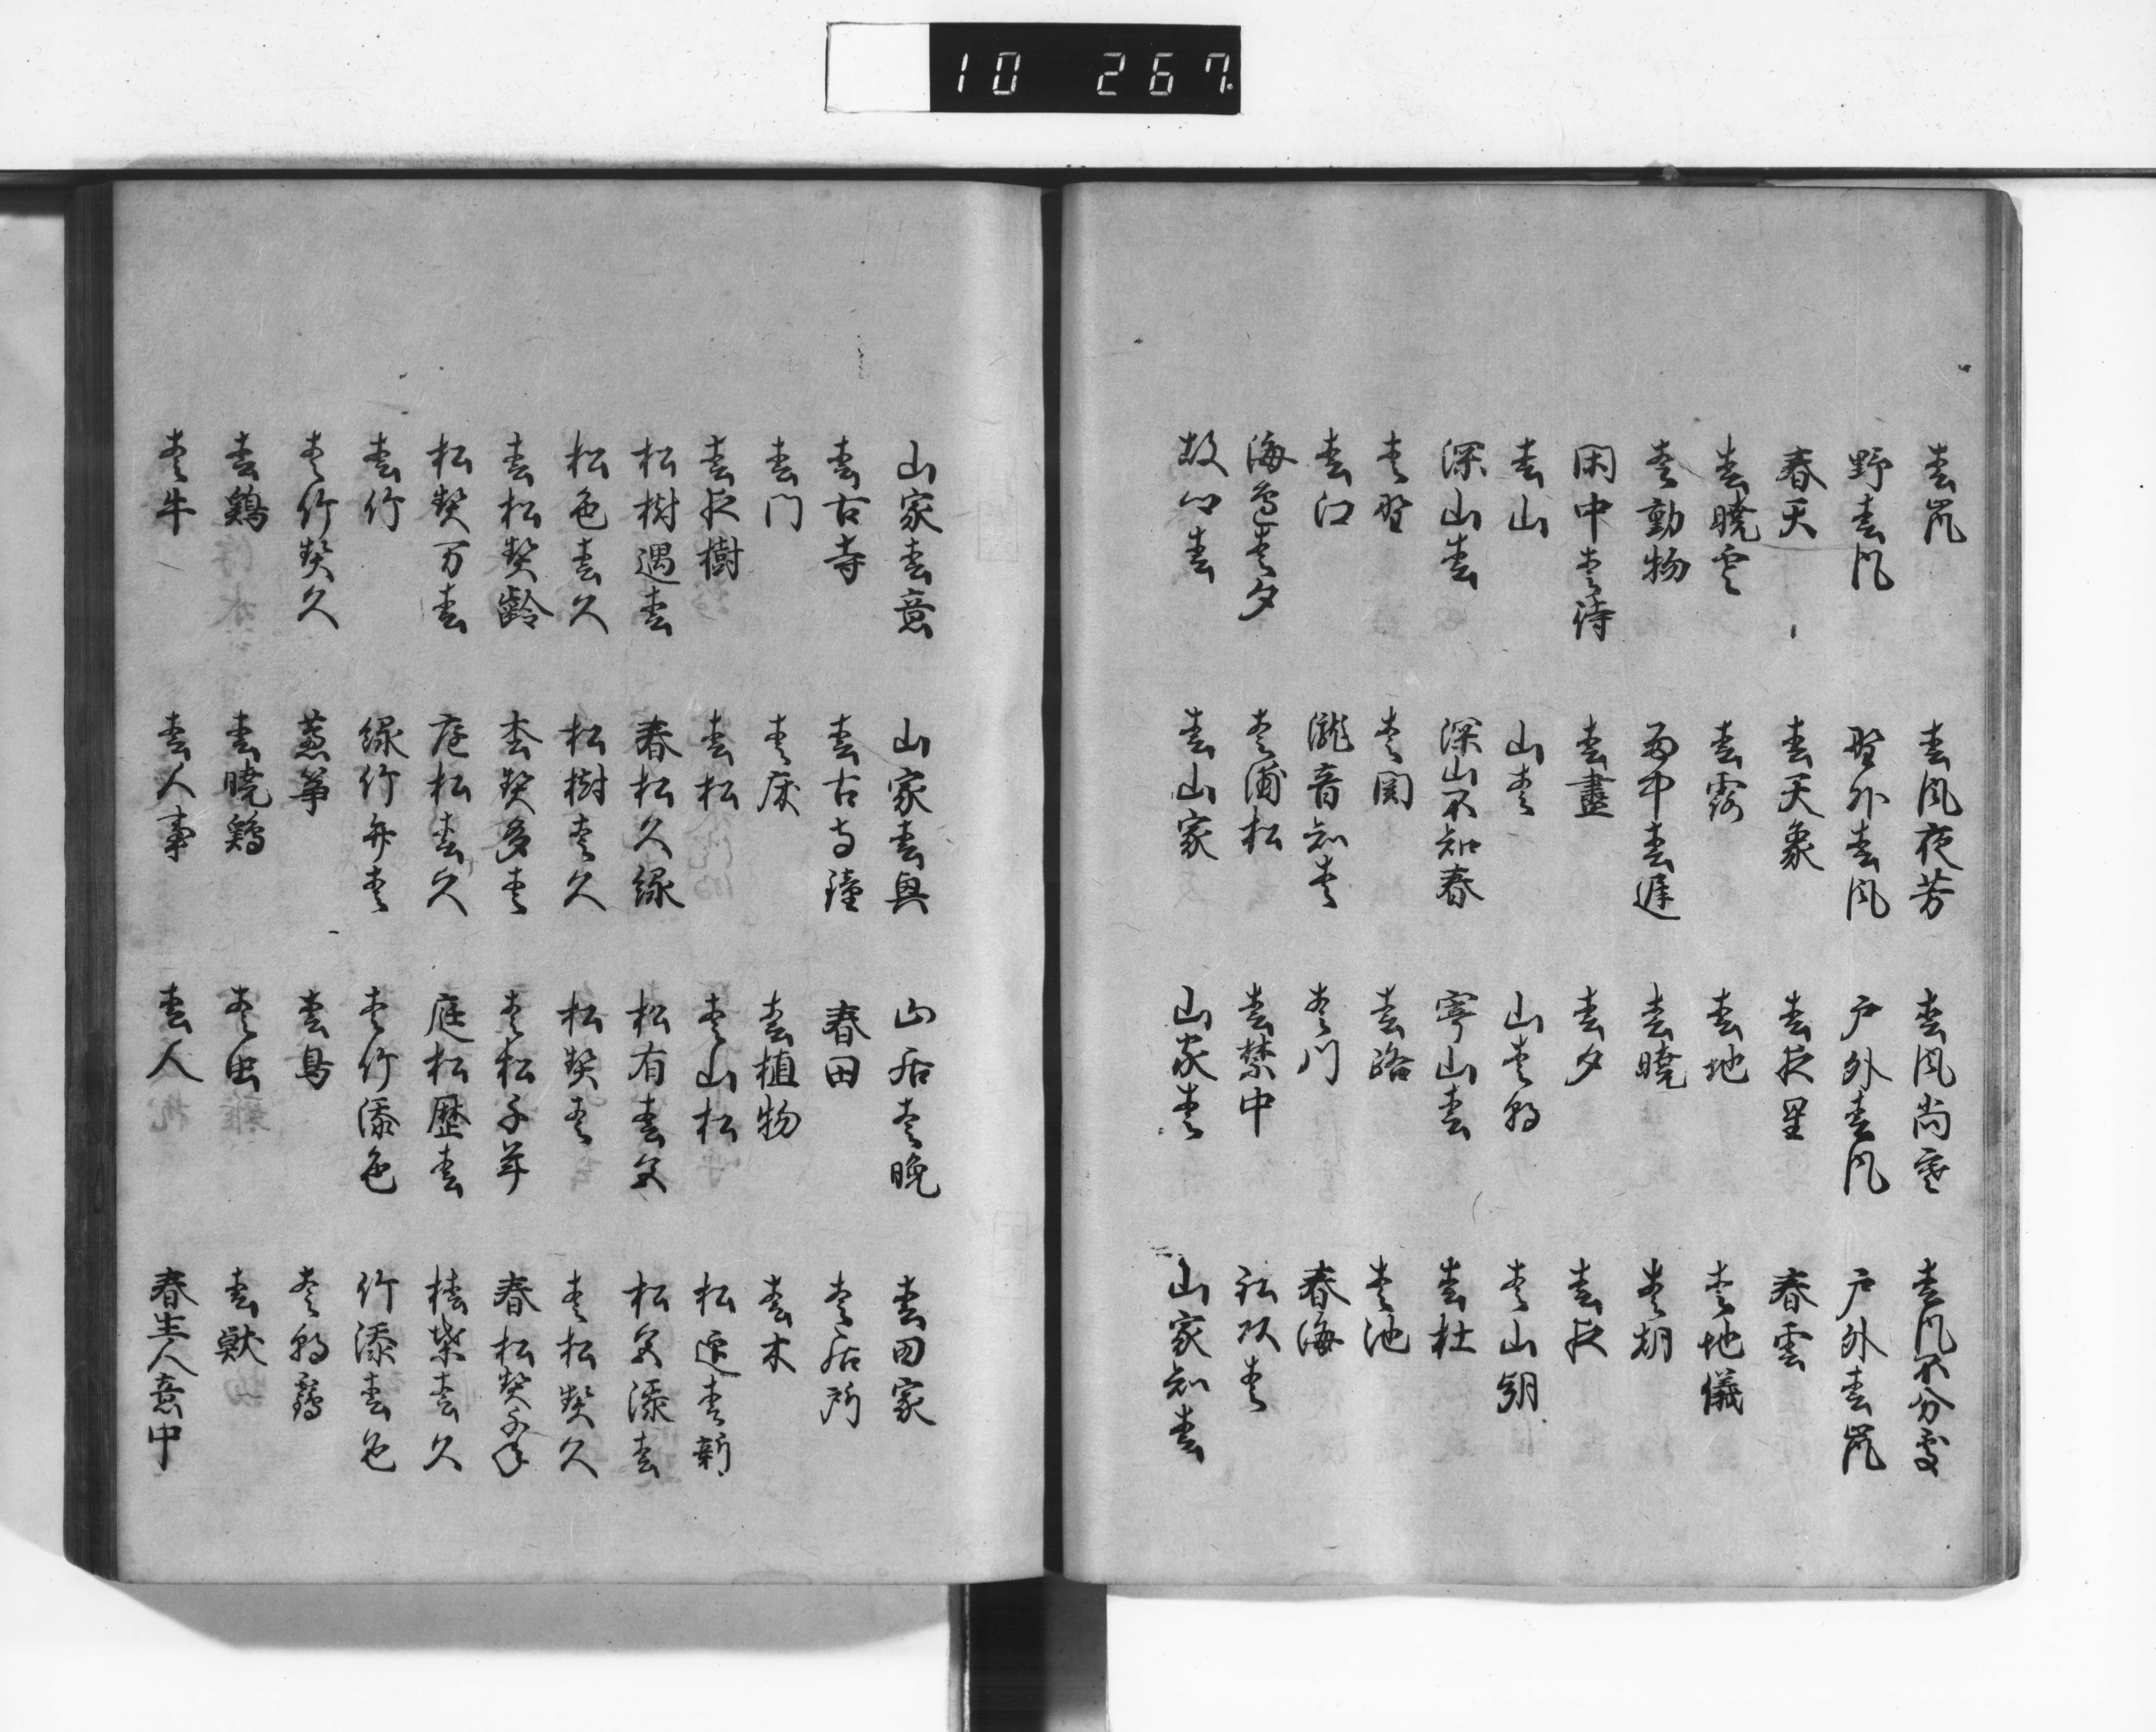 10 267
春嵐 春風夜芳 春風尚寒 春風不分処
野春風 野外春風 戸外春風 戸外春嵐
春天 春天象 春夜星 春雲
春暁雲 春露 春地 春地儀
春動物 雨中春遅 春暁 春朝
閑中春待 春尽 春夕 春夜
春山 山春 山春朝 春山朝
深山春 深山不知春 寧山春 春杜
春野 春関 春路 春池
春江 滝音知春 春川 春海
海辺春夕 春浦松 春禁中
故郷春 春山家 山家春 山家知春
山家春意 山家春興 山居春晩 春田家
春古寺 春古寺鐘 春田 春居所
春門 春床 春植物 春木
春夜樹 春松 春山松 松迎春新
松樹遇春 春松久緑 松有春久 松久添春
松色春久 松樹春久 松契春 春松契久
春松契齢 春契多春 春松子年 春松契多年
松契万春 庭松春久 庭松歴春 椿葉春久
春竹 緑竹弁春 春竹添色 竹添春色
春竹契久 春鳥 春朝鶏
春鶏 春暁鶏 春虫 春獣
春牛 春人事 春人 春生人意中